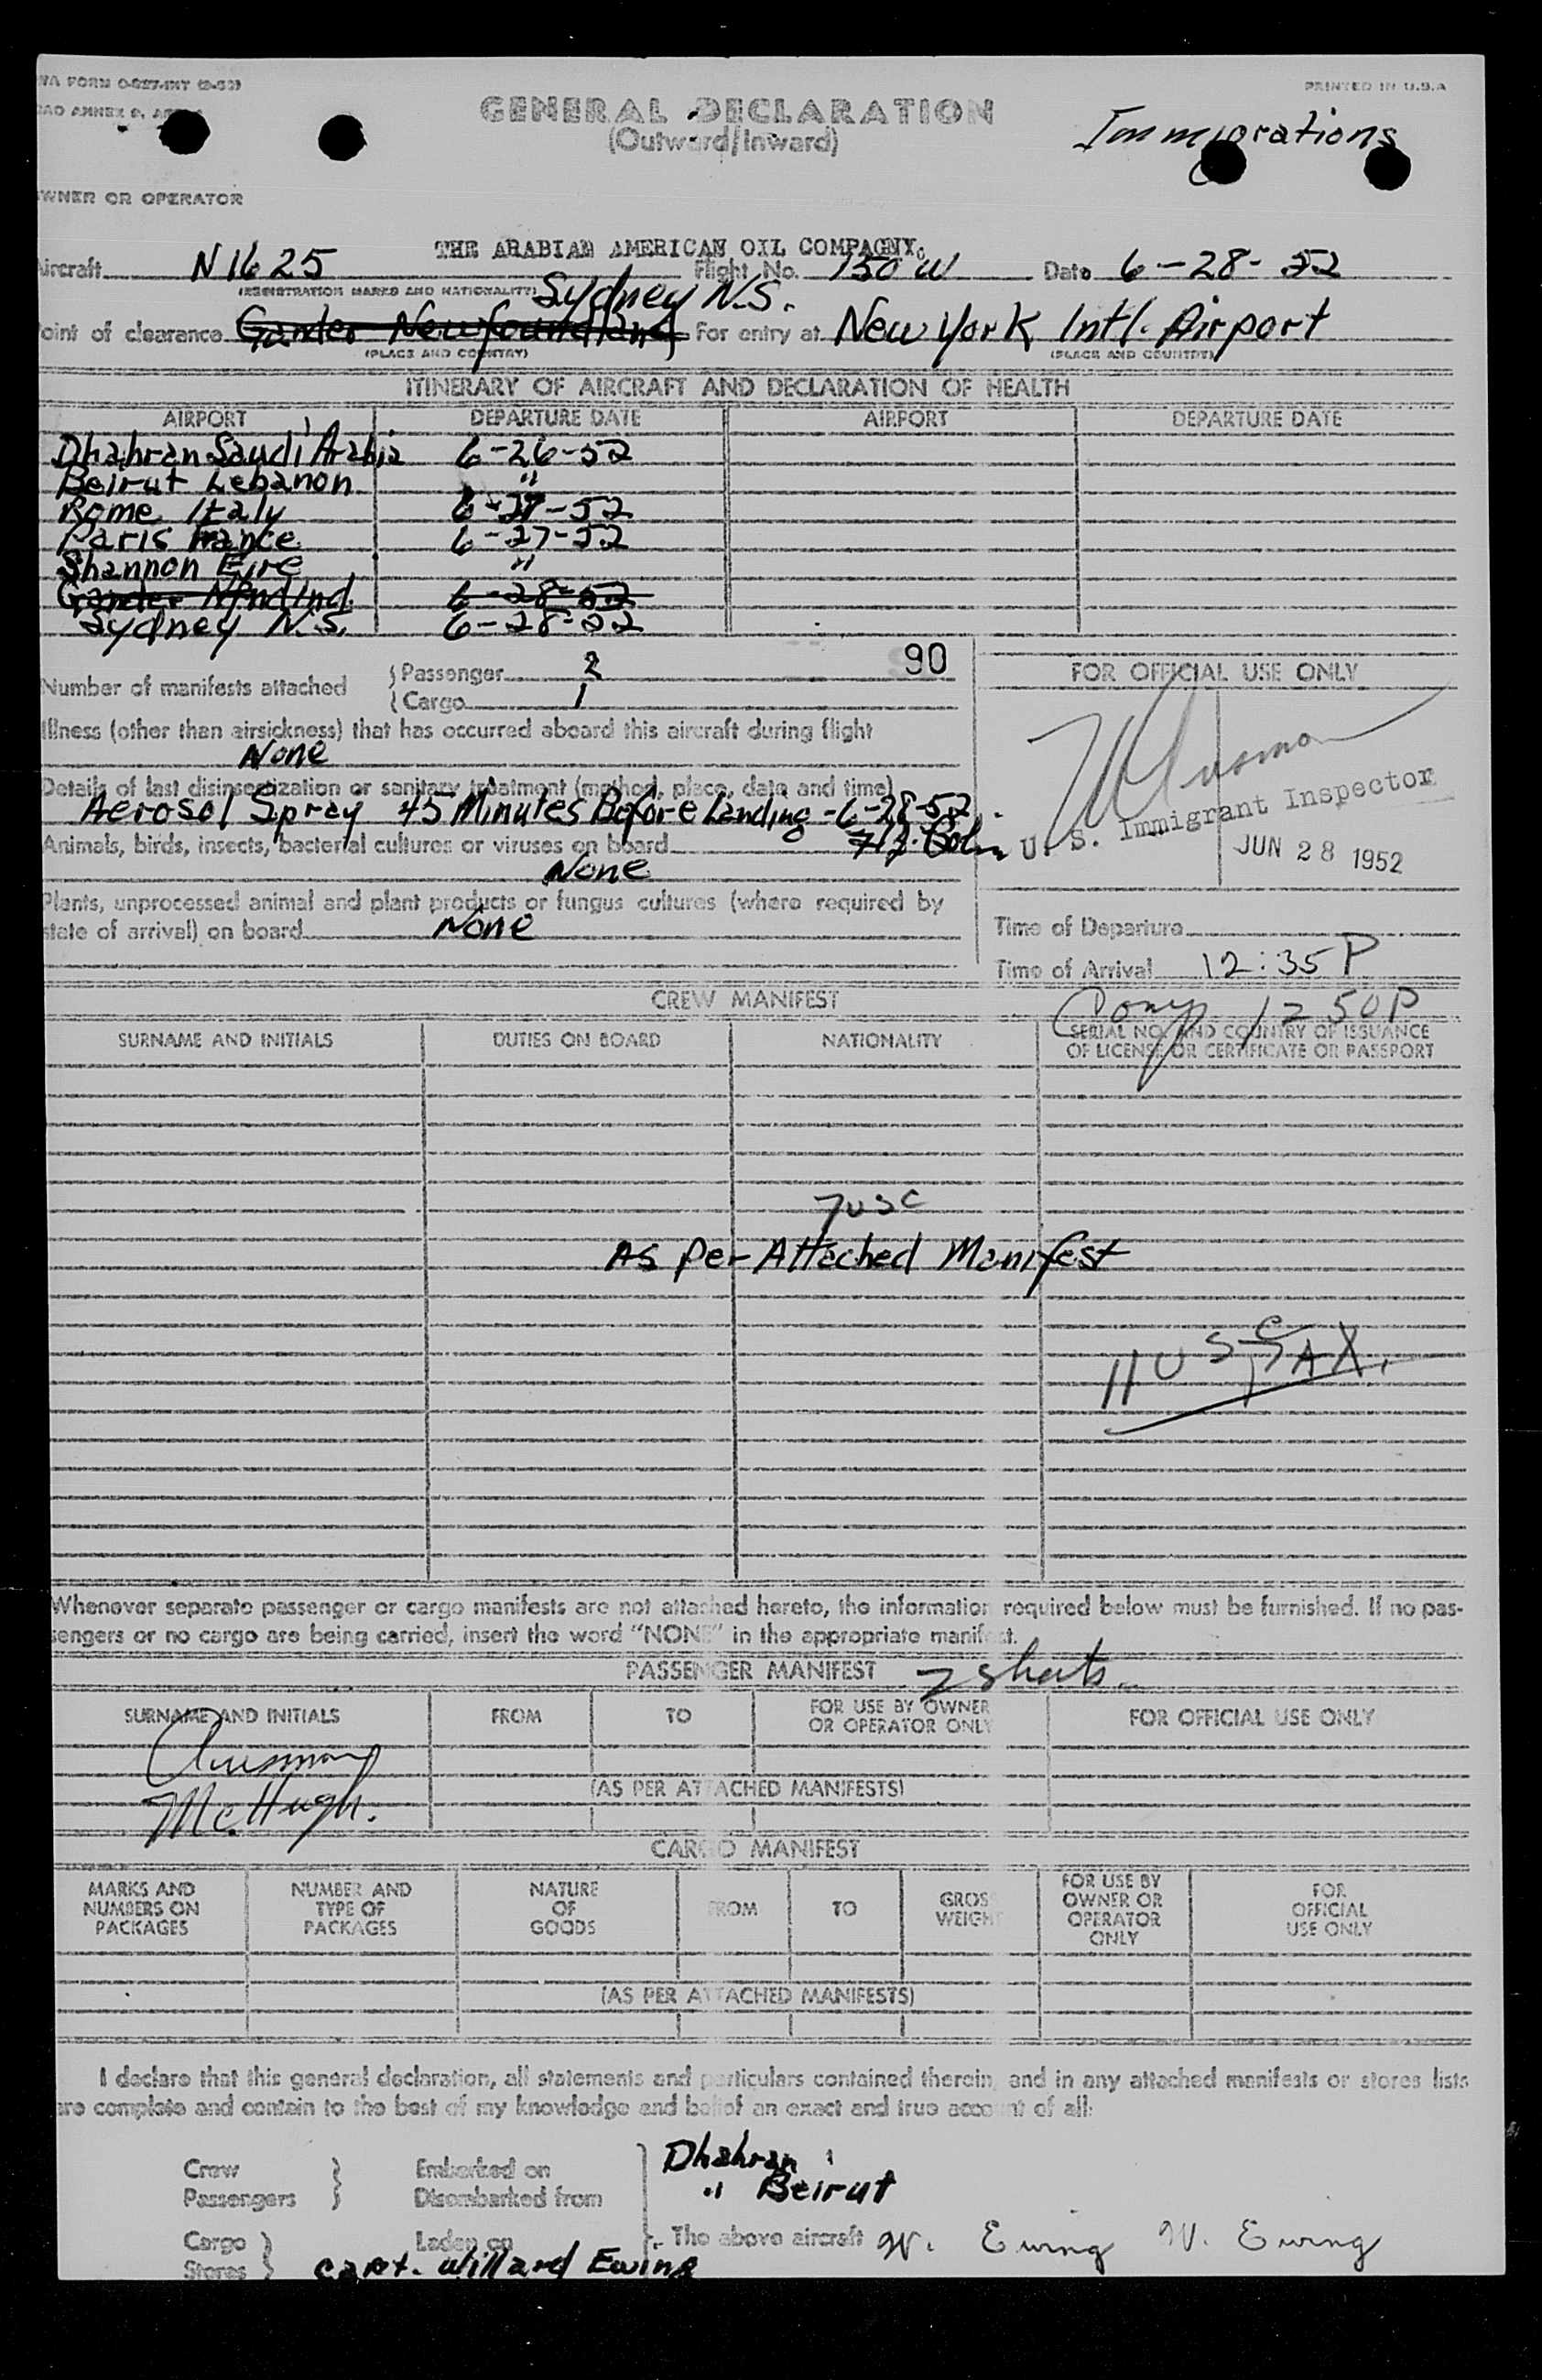 WA FORM O-827-INT
PRINTED IN U.S.A
GENERAL DECLARATION
(Outward/Inward)
Immigrations
WNER OR OPERATOR
THE ARABIAN AMERICAN OIL COMPAGNY.
ircraft N1625 Flight No. 150 W Date 6-28-52
(REGISTRATION MARKS AND NATIONALITY)
Sydney N.S.
oint of clearance Gander Newfoundland For entry at New York Intl. Airport
(PLACE AND COUNTRY) (PLACE AND COUNTRY)
ITINERARY OF AIRCRAFT AND DECLARATION OF HEALTH
AIRPORT DEPARTURE DATE AIRPORT DEPARTURE DATE
Dhahran Saudi Arabia 6-26-52
Beirut Lebanon "
Rome Italy 6-27-52
Paris France 6-27-52
Shannon Eire "
Gander Nfndlnd. 6-28-52
Sydney N.S. 6-28-52
Number of manifests attached
Passenger 2 90
Cargo 1
FOR OFFICIAL USE ONLY
Illness (other than airsickness) that has occurred aboard this aircraft during flight
None
Details of last disinsectization or sanitary treatment (method, place, date and time)
Aerosol Spray 45 Minutes Before Landing - 6-28-52
U. S. Immigrant Inspector
JUN 28 1952
Animals, birds, insects, bacterial cultures or viruses on board
None
Plants, unprocessed animal and plant products or fungus cultures (where required by
state of arrival) on board None
Time of Departure
Time of Arrival 12:35 P
Comp 1250P
CREW MANIFEST
SURNAME AND INITIALS DUTIES ON BOARD NATIONALITY SERIAL NO. AND COUNTRY OF ISSUANCE
OF LICENSE OR CERTIFICATE OR PASSPORT
7 USC
As Per Attached Manifest
11 USC
Whenever separate passenger or cargo manifests are not attached hereto, the information required below must be furnished. If no pas-
sengers or no cargo are being carried, insert the word "NONE" in the appropriate manifest.
PASSENGER MANIFEST 2 sheets
SURNAME AND INITIALS FROM TO FOR USE BY OWNER
OR OPERATOR ONLY FOR OFFICIAL USE ONLY
(AS PER ATTACHED MANIFESTS)
McHugh.
CARGO MANIFEST
MARKS AND
NUMBERS ON
PACKAGES
NUMBER AND
TYPE OF
PACKAGES
NATURE
OF
GOODS
FROM
TO
GROSS
WEIGHT
FOR USE BY
OWNER OR
OPERATOR
ONLY
FOR
OFFICIAL
USE ONLY
(AS PER ATTACHED MANIFESTS)
I declare that this general declaration, all statements and particulars contained therein, and in any attached manifests or stores lists
are complete and contain to the best of my knowledge and belief an exact and true account of all:
Crew Embarked on Dhahran
Passengers Disembarked from " Beirut
Cargo Laden on The above aircraft W. Ewing W. Ewing
Stores Capt. Willard Ewing